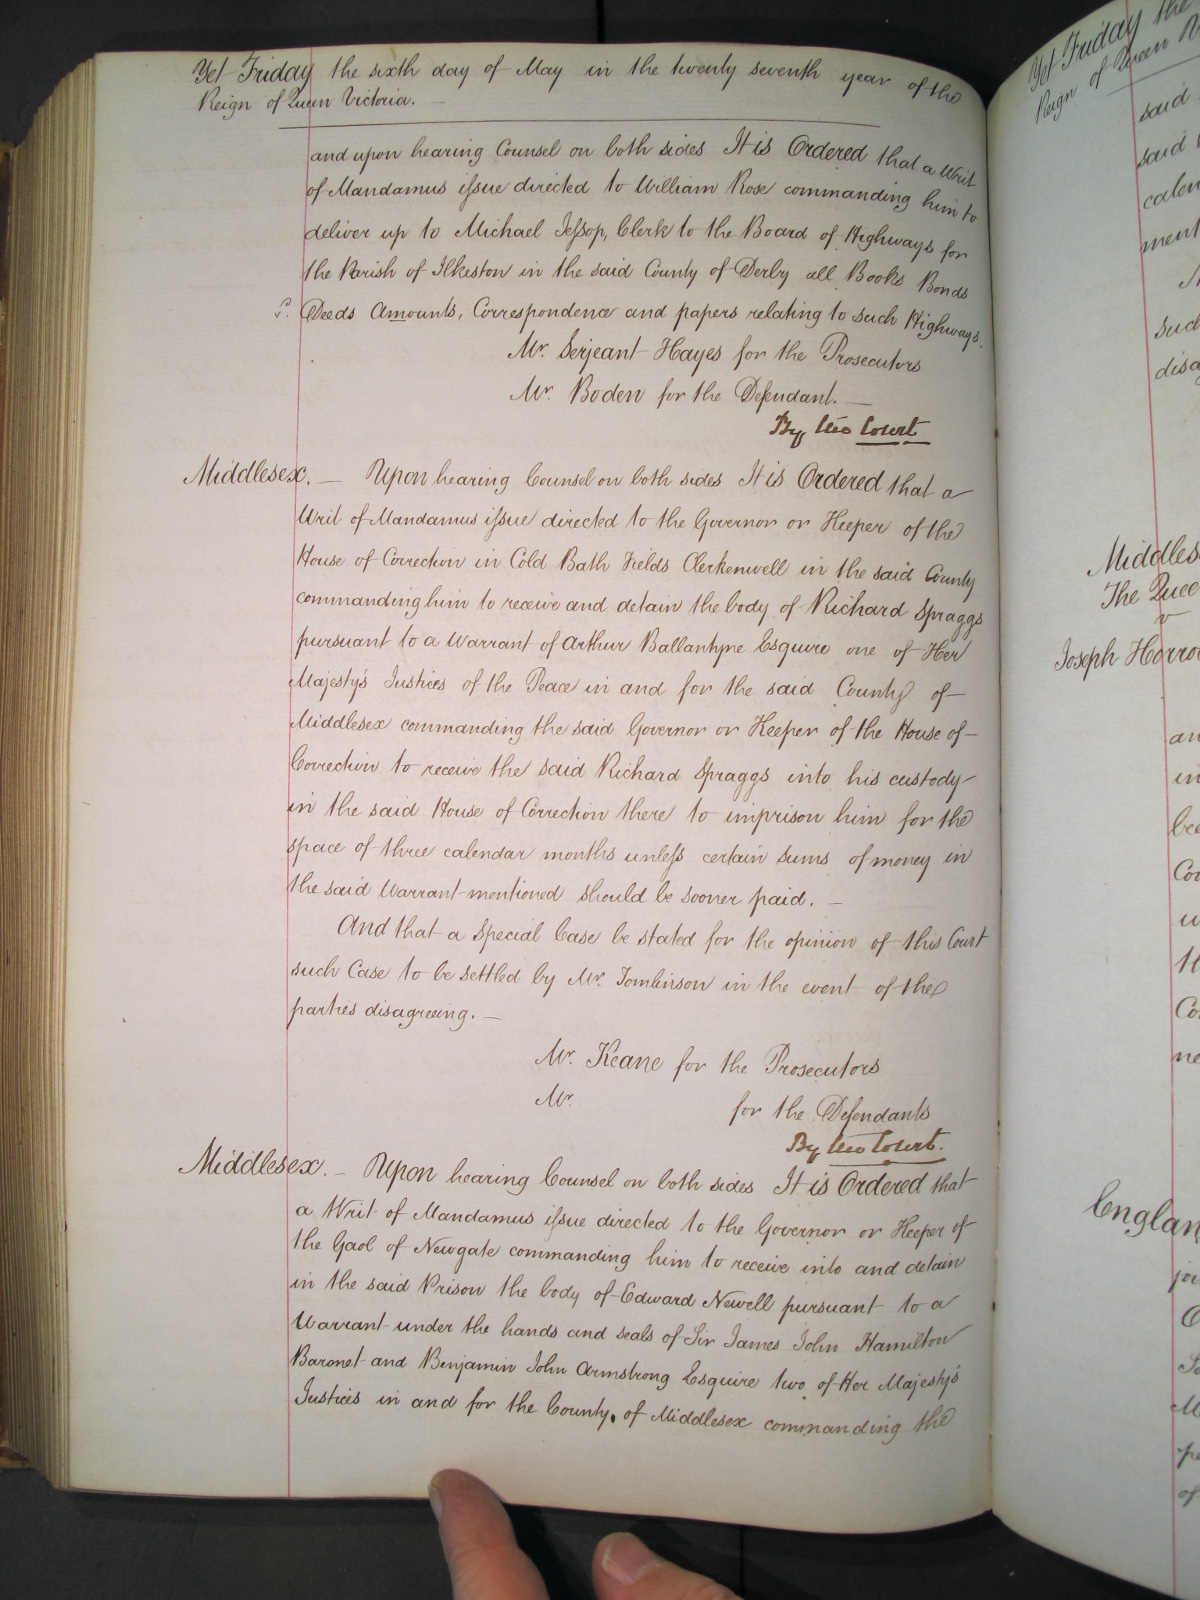 Yet Friday the sixth day of May in the twenty seventh year of the
Reign of Queen Victoria.
and upon hearing Counsel on both sides It is Ordered that a Writ
of Mandamus issue directed to William Rose commanding him to
deliver up to Michael Jessop, Clerk to the Board of Highways for
the Parish of Ilkeston in the said County of Derby all Books Bonds
Deeds Amounts, Correspondence and papers relating to such Highways.
Mr. Serjeant Hayes for the Prosecutors
Mr. Boden for the Defendant. —
By the Court
Middlesex. — Upon hearing Counsel on both sides It is Ordered that a
Writ of Mandamus issue directed to the Governor or Keeper of the
House of Correction in Cold Bath Fields Clerkenwell in the said County
commanding him to receive and detain the body of Richard Spraggs
pursuant to a Warrant of Arthur Ballantyne Esquire one of Her
Majesty's Justices of the Peace in and for the said County of
Middlesex commanding the said Governor or Keeper of the House of
Correction to receive the said Richard Spraggs into his custody
in the said House of Correction there to imprison him for the
space of three calendar months unless certain sums of money in
the said Warrant mentioned should be sooner paid. —
And that a Special Case be stated for the opinion of this Court
such Case to be settled by Mr. Tomlinson in the event of the
parties disagreeing. —
Mr. Keane for the Prosecutors
Mr. for the Defendants
By the Court.
Middlesex. — Upon hearing Counsel on both sides It is Ordered that
a Writ of Mandamus issue directed to the Governor or Keeper of
the Gaol of Newgate commanding him to receive into and detain
in the said Prison the body of Edward Newell pursuant to a
Warrant under the hands and seals of Sir James John Hamilton
Baronet and Benjamin John Armstrong Esquire two of Her Majesty's
Justices in and for the County of Middlesex commanding the
Yet Friday the
Reign of Queen
said
said
Middles
The Quee
v
Joseph
Englan